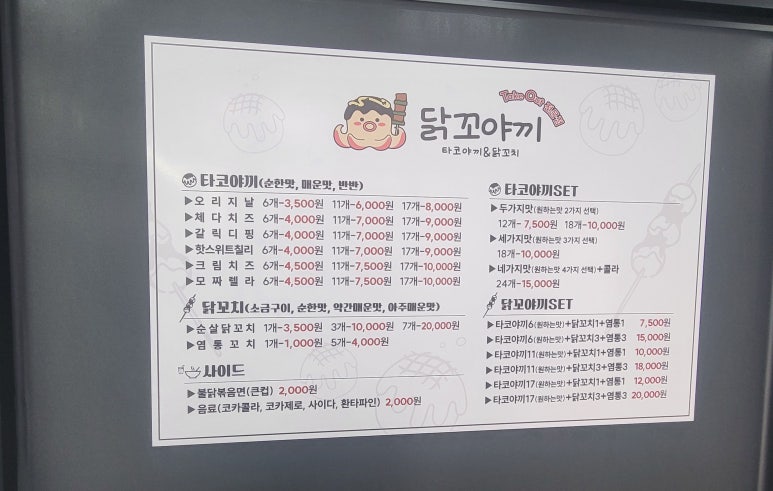 Take Out 전문점
닭꼬야끼
타코야끼&닭꼬치
타코야끼(순한맛, 매운맛, 반반)
▶오리지날 6개-3,500원 11개-6,000원 17개-8,000원
▶체다치즈 6개-4,000원 11개-7,000원 17개-9,000원
▶갈릭디핑 6개-4,000원 11개-7,000원 17개-9,000원
▶핫스위트칠리 6개-4,000원 11개-7,000원 17개-9,000원
▶크림치즈 6개-4,500원 11개-7,500원 17개-10,000원
▶모짜렐라 6개-4,500원 11개-7,500원 17개-10,000원
닭꼬치(소금구이, 순한맛, 약간매운맛, 아주매운맛)
▶순살닭꼬치 1개-3,500원 3개-10,000원 7개-20,000원
▶염통꼬치 1개-1,000원 5개-4,000원
사이드
▶불닭볶음면(큰컵) 2,000원
▶음료(코카콜라, 코카제로, 사이다, 환타파인) 2,000원
타코야끼SET
▶두가지맛(원하는맛 2가지 선택)
12개- 7,500원 18개-10,000원
▶세가지맛(원하는맛 3가지 선택)
18개-10,000원
▶네가지맛(원하는맛 4가지 선택)+콜라
24개-15,000원
닭꼬야끼SET
▶타코야끼6(원하는맛)+닭꼬치1+염통1 7,500원
▶타코야끼6(원하는맛)+닭꼬치3+염통3 15,000원
▶타코야끼11(원하는맛)+닭꼬치1+염통1 10,000원
▶타코야끼11(원하는맛)+닭꼬치3+염통3 18,000원
▶타코야끼17(원하는맛)+닭꼬치1+염통1 12,000원
▶타코야끼17(원하는맛)+닭꼬치3+염통3 20,000원